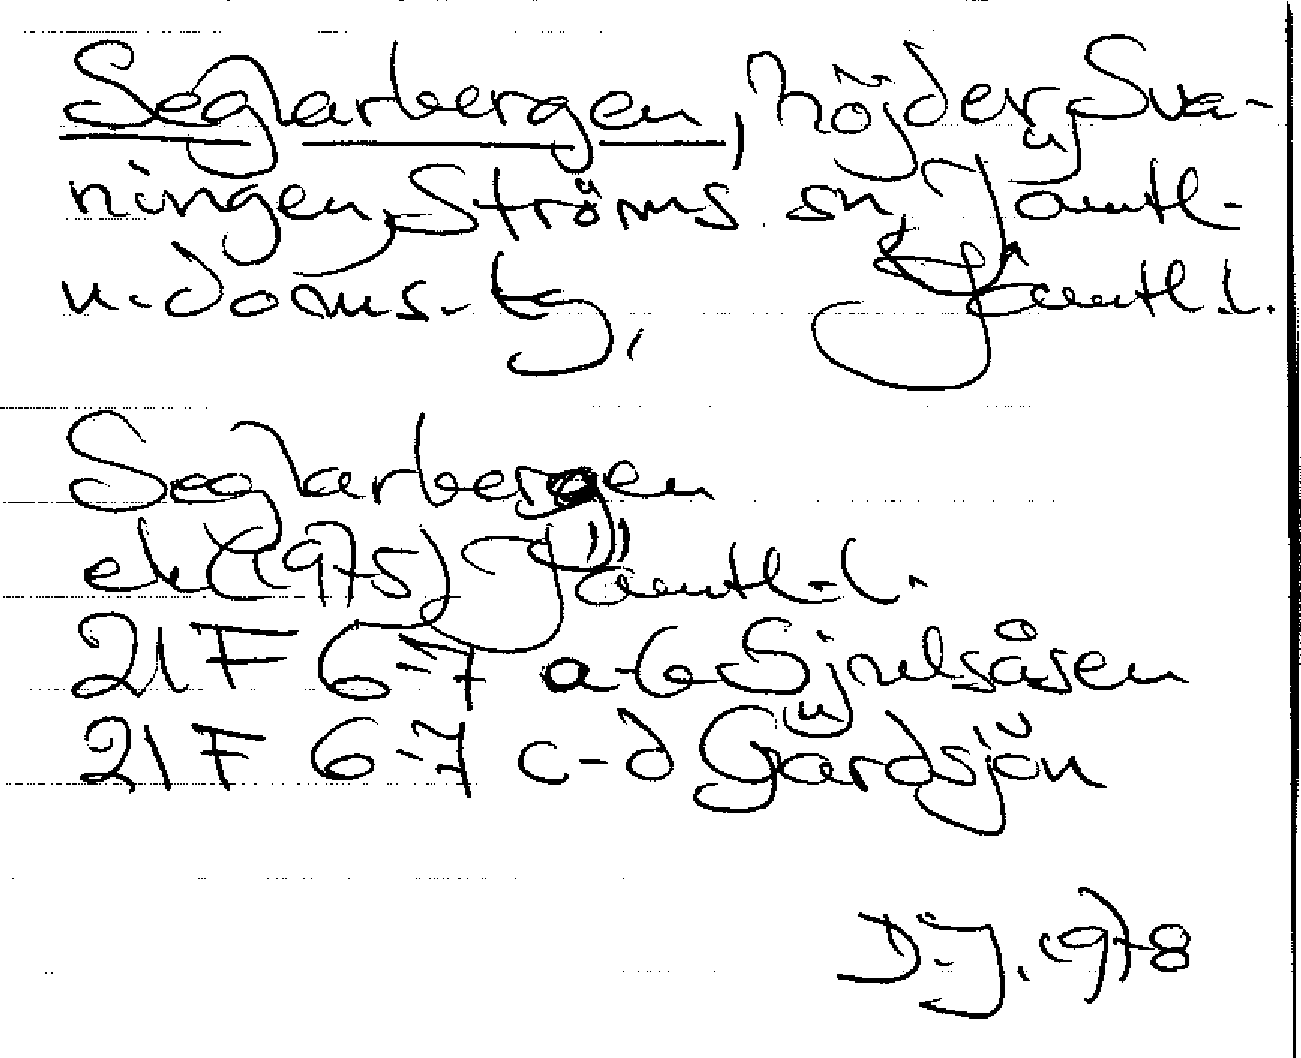 Seglarbergen, höjder, Sva-
ningen, Ströms sn, Jämtl-
n-doms-tg, Jämtl l.
Seglarbergen
ek (1975) Jämtl-l.
21 F 6-7 a-b Sjoulsåsen
21 F 6-7 c-d Gärdsjön
D-J. 1978